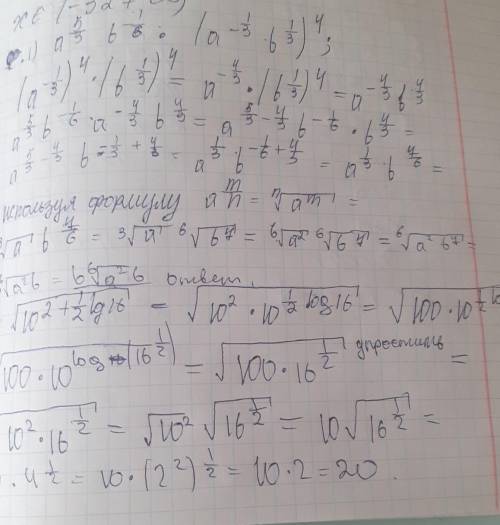 x ∈ (-
1) a^{5/3} b^{-1/6} : (a^{-1/3} · b^{1/3})^4;
(a^{-1/3})^4 · (b^{1/3})^4 = a^{-4/3} · (b^{1/3})^4 = a^{-4/3} b^{4/3}
a^{5/3} b^{-1/6} · a^{-4/3} b^{4/3} = a^{5/3 - 4/3} b^{-1/6} · b^{4/3} =
a^{5/3 - 4/3} b^{-1/3 + 4/3} = a^{1/3} · b^{-1/6 + 4/3} = a^{1/3} · b^{7/6} =
используя формулу a^{m/n} = ⁿ√a^m =
³√a b^{7/6} = ³√a ⁶√b^7 = ⁶√a² ⁶√b^7 = ⁶√a² b^7 =
√a² b = b ⁶√a² b ответ.
√10^{2 + 1/2 lg 16} = √10² · 10^{1/2 log 16} = √100 · 10^{1/2 lo
√100 · 10^{log (16^{1/2})} = √100 · 16^{1/2} упростить =
√10² · 16^{1/2} = √10² √16^{1/2} = 10 √16^{1/2} =
· 4^{1/2} = 10 · (2²)^{1/2} = 10 · 2 = 20.